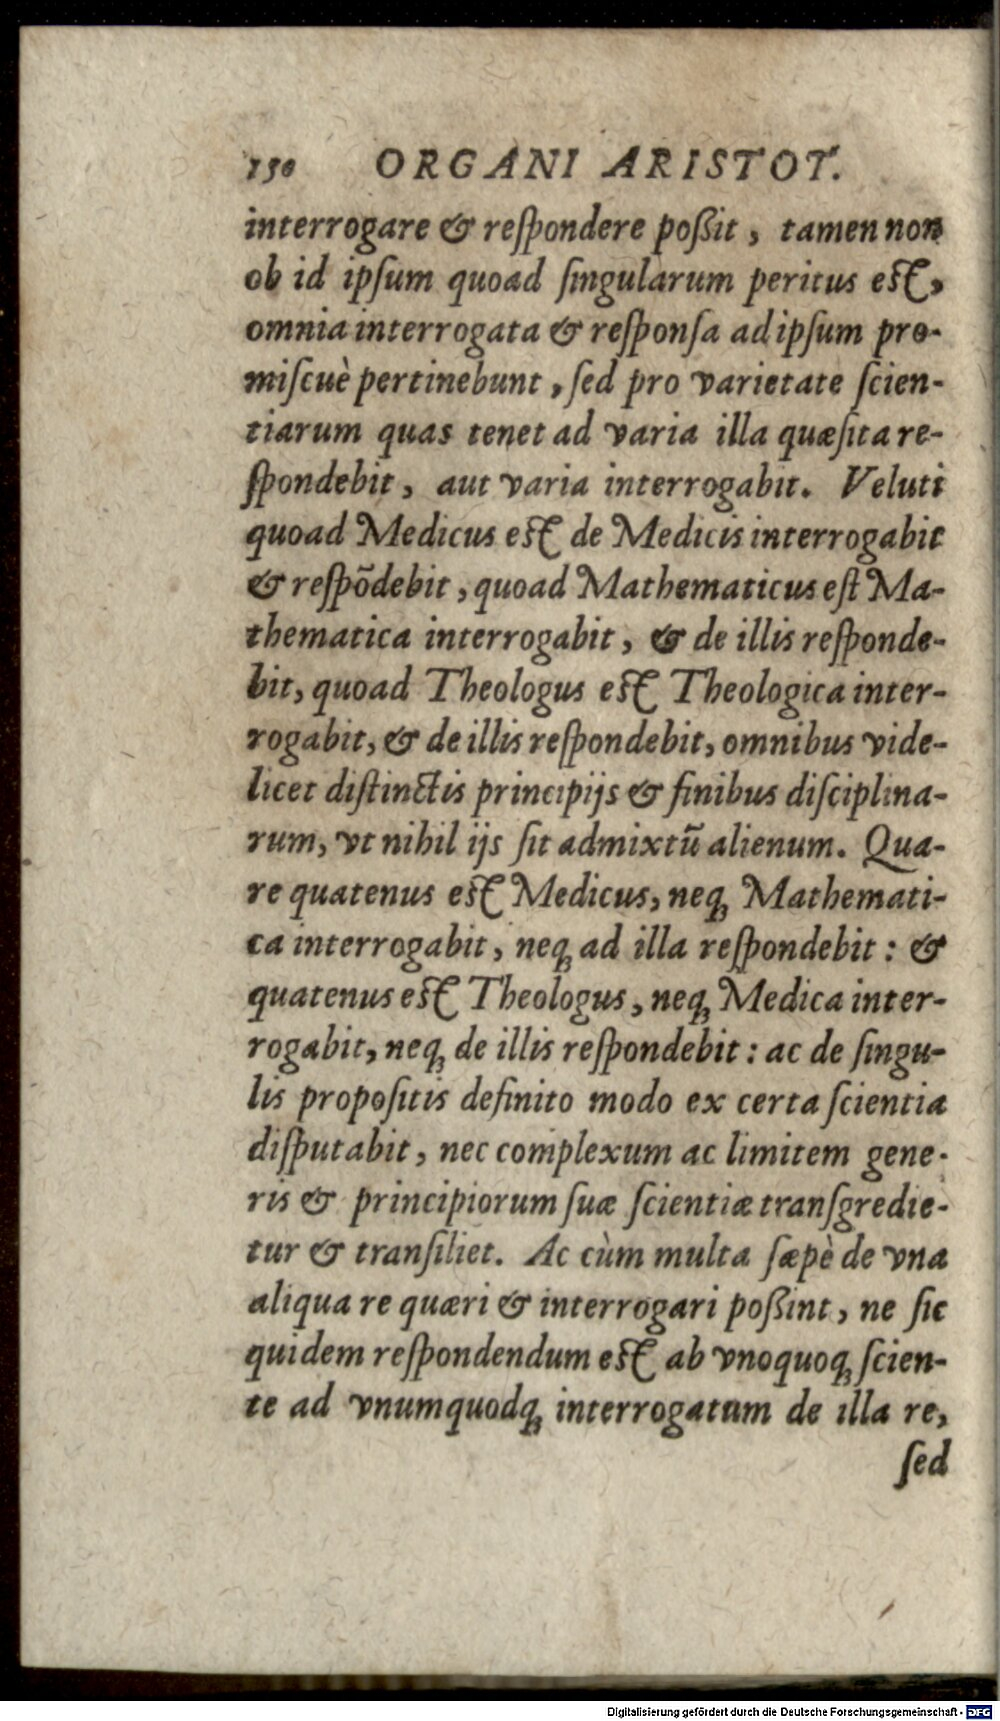 150 ORGANI ARISTOT.
interrogare & reſpondere poßit, tamen non
ob id ipſum quoad ſingularum peritus eſt,
omnia interrogata & reſponſa ad ipſum pro-
miſcuè pertinebunt, ſed pro varietate ſcien-
tiarum quas tenet ad varia illa quæſita re-
ſpondebit, aut varia interrogabit. Veluti
quoad Medicus eſt de Medicis interrogabit
& reſpõdebit, quoad Mathematicus eſt Ma-
thematica interrogabit, & de illis reſponde-
bit, quoad Theologus eſt Theologica inter-
rogabit, & de illis reſpondebit, omnibus vide-
licet diſtinctis principijs & finibus diſciplina-
rum, vt nihil ijs ſit admixtũ alienum. Qua-
re quatenus eſt Medicus, neqꝫ Mathemati-
ca interrogabit, neqꝫ ad illa reſpondebit: &
quatenus eſt Theologus, neqꝫ Medica inter-
rogabit, neqꝫ de illis reſpondebit: ac de ſingu-
lis propoſitis definito modo ex certa ſcientia
diſputabit, nec complexum ac limitem gene-
ris & principiorum ſuæ ſcientiæ tranſgredie-
tur & tranſiliet. Ac cùm multa ſæpè de vna
aliqua re quæri & interrogari poßint, ne ſic
quidem reſpondendum eſt ab vnoquoqꝫ ſcien-
te ad vnumquodqꝫ interrogatum de illa re,
ſed
Digitalisierung gefördert durch die Deutsche Forschungsgemeinschaft - DFG